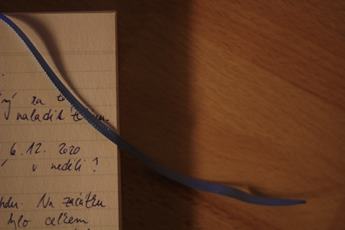 ný za to
naladit
6. 12. 2020
v neděli?
Na začátku
bylo celkem